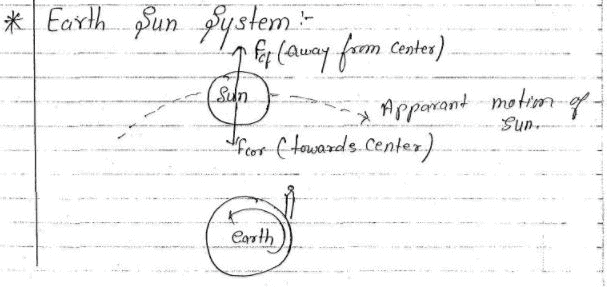 * Earth Sun System :-
Fcf (away from center)
Sun
Apparant motion of Sun.
Fcor (towards center)
earth